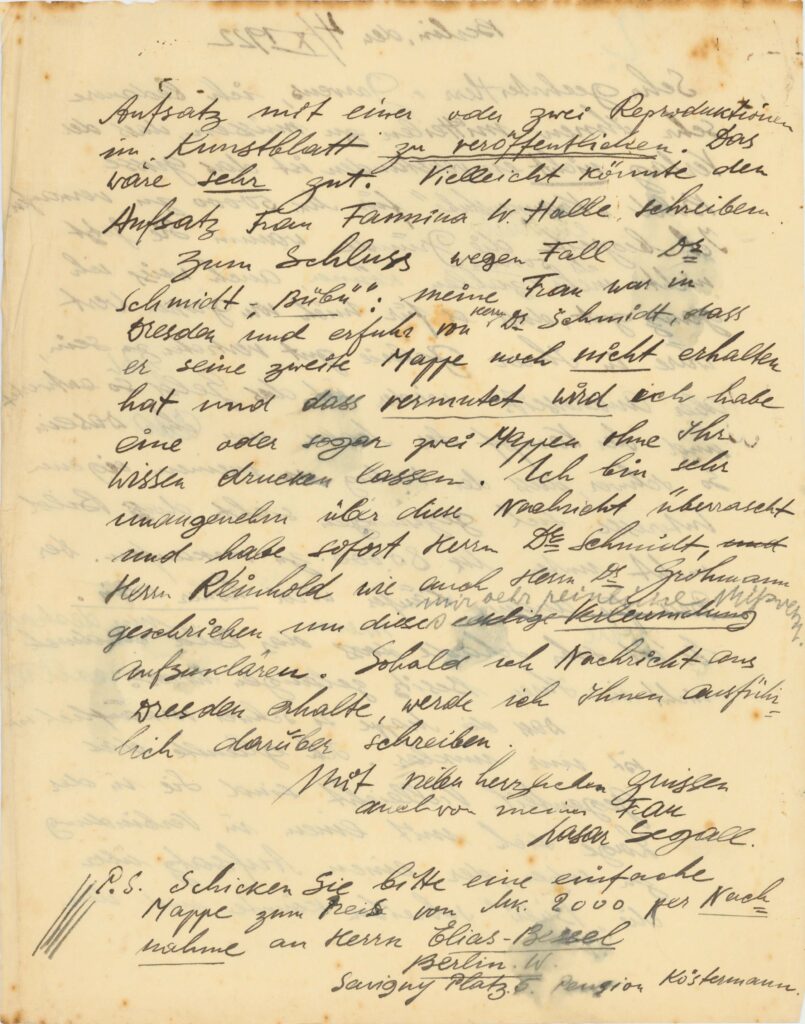 Aufsatz mit einer oder zwei Reproduktionen
im Kunstblatt zu veröffentlichen. Das
wäre sehr gut. Vielleicht könnte den
Aufsatz Frau Fannina W. Halle schreiben.
Zum Schluss wegen Fall Dr
Schmidt, „Bübü“: meine Frau war in
Dresden und erfuhr von Herrn Dr Schmidt, dass
er seine zweite Mappe noch nicht erhalten
hat und dass vermutet wird ich habe
eine oder sogar zwei Mappen ohne Ihr
Wissen drucken lassen. Ich bin sehr
unangenehm über diese Nachricht überrascht
und habe sofort Herrn Dr Schmidt, und
Herrn Reinhold wie auch Herrn Dr Grohmann
mir sehr peinliche
geschrieben um diese Verleumdung
aufzuklären. Sobald ich Nachricht aus
Dresden erhalte, werde ich Ihnen ausführ-
lich darüber schreiben.
Mit vielen herzlichen grüssen
auch von meiner Frau
Lasar Segall.
P.S. Schicken Sie bitte eine einfache
Mappe zum Preis von Mk. 2000 per Nach-
nahme an Herrn Elias-Bessel
Berlin. W.
Savigny Platz 6. Pension Köstermann.